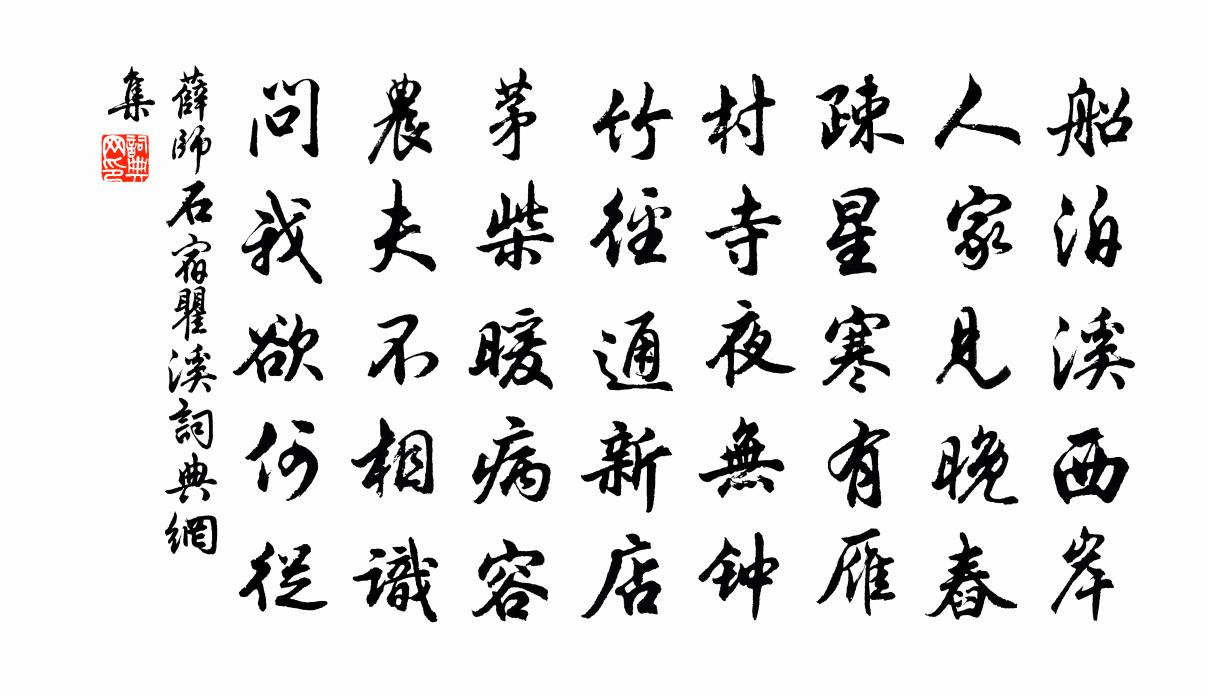 船泊溪西岸
人家見晚舂
疎星寒有雁
村寺夜無鈡
竹徑通新店
茅柴暖病容
農夫不相識
問我欲何從
薛師石宿瞿溪詞典網
集
詞典網印